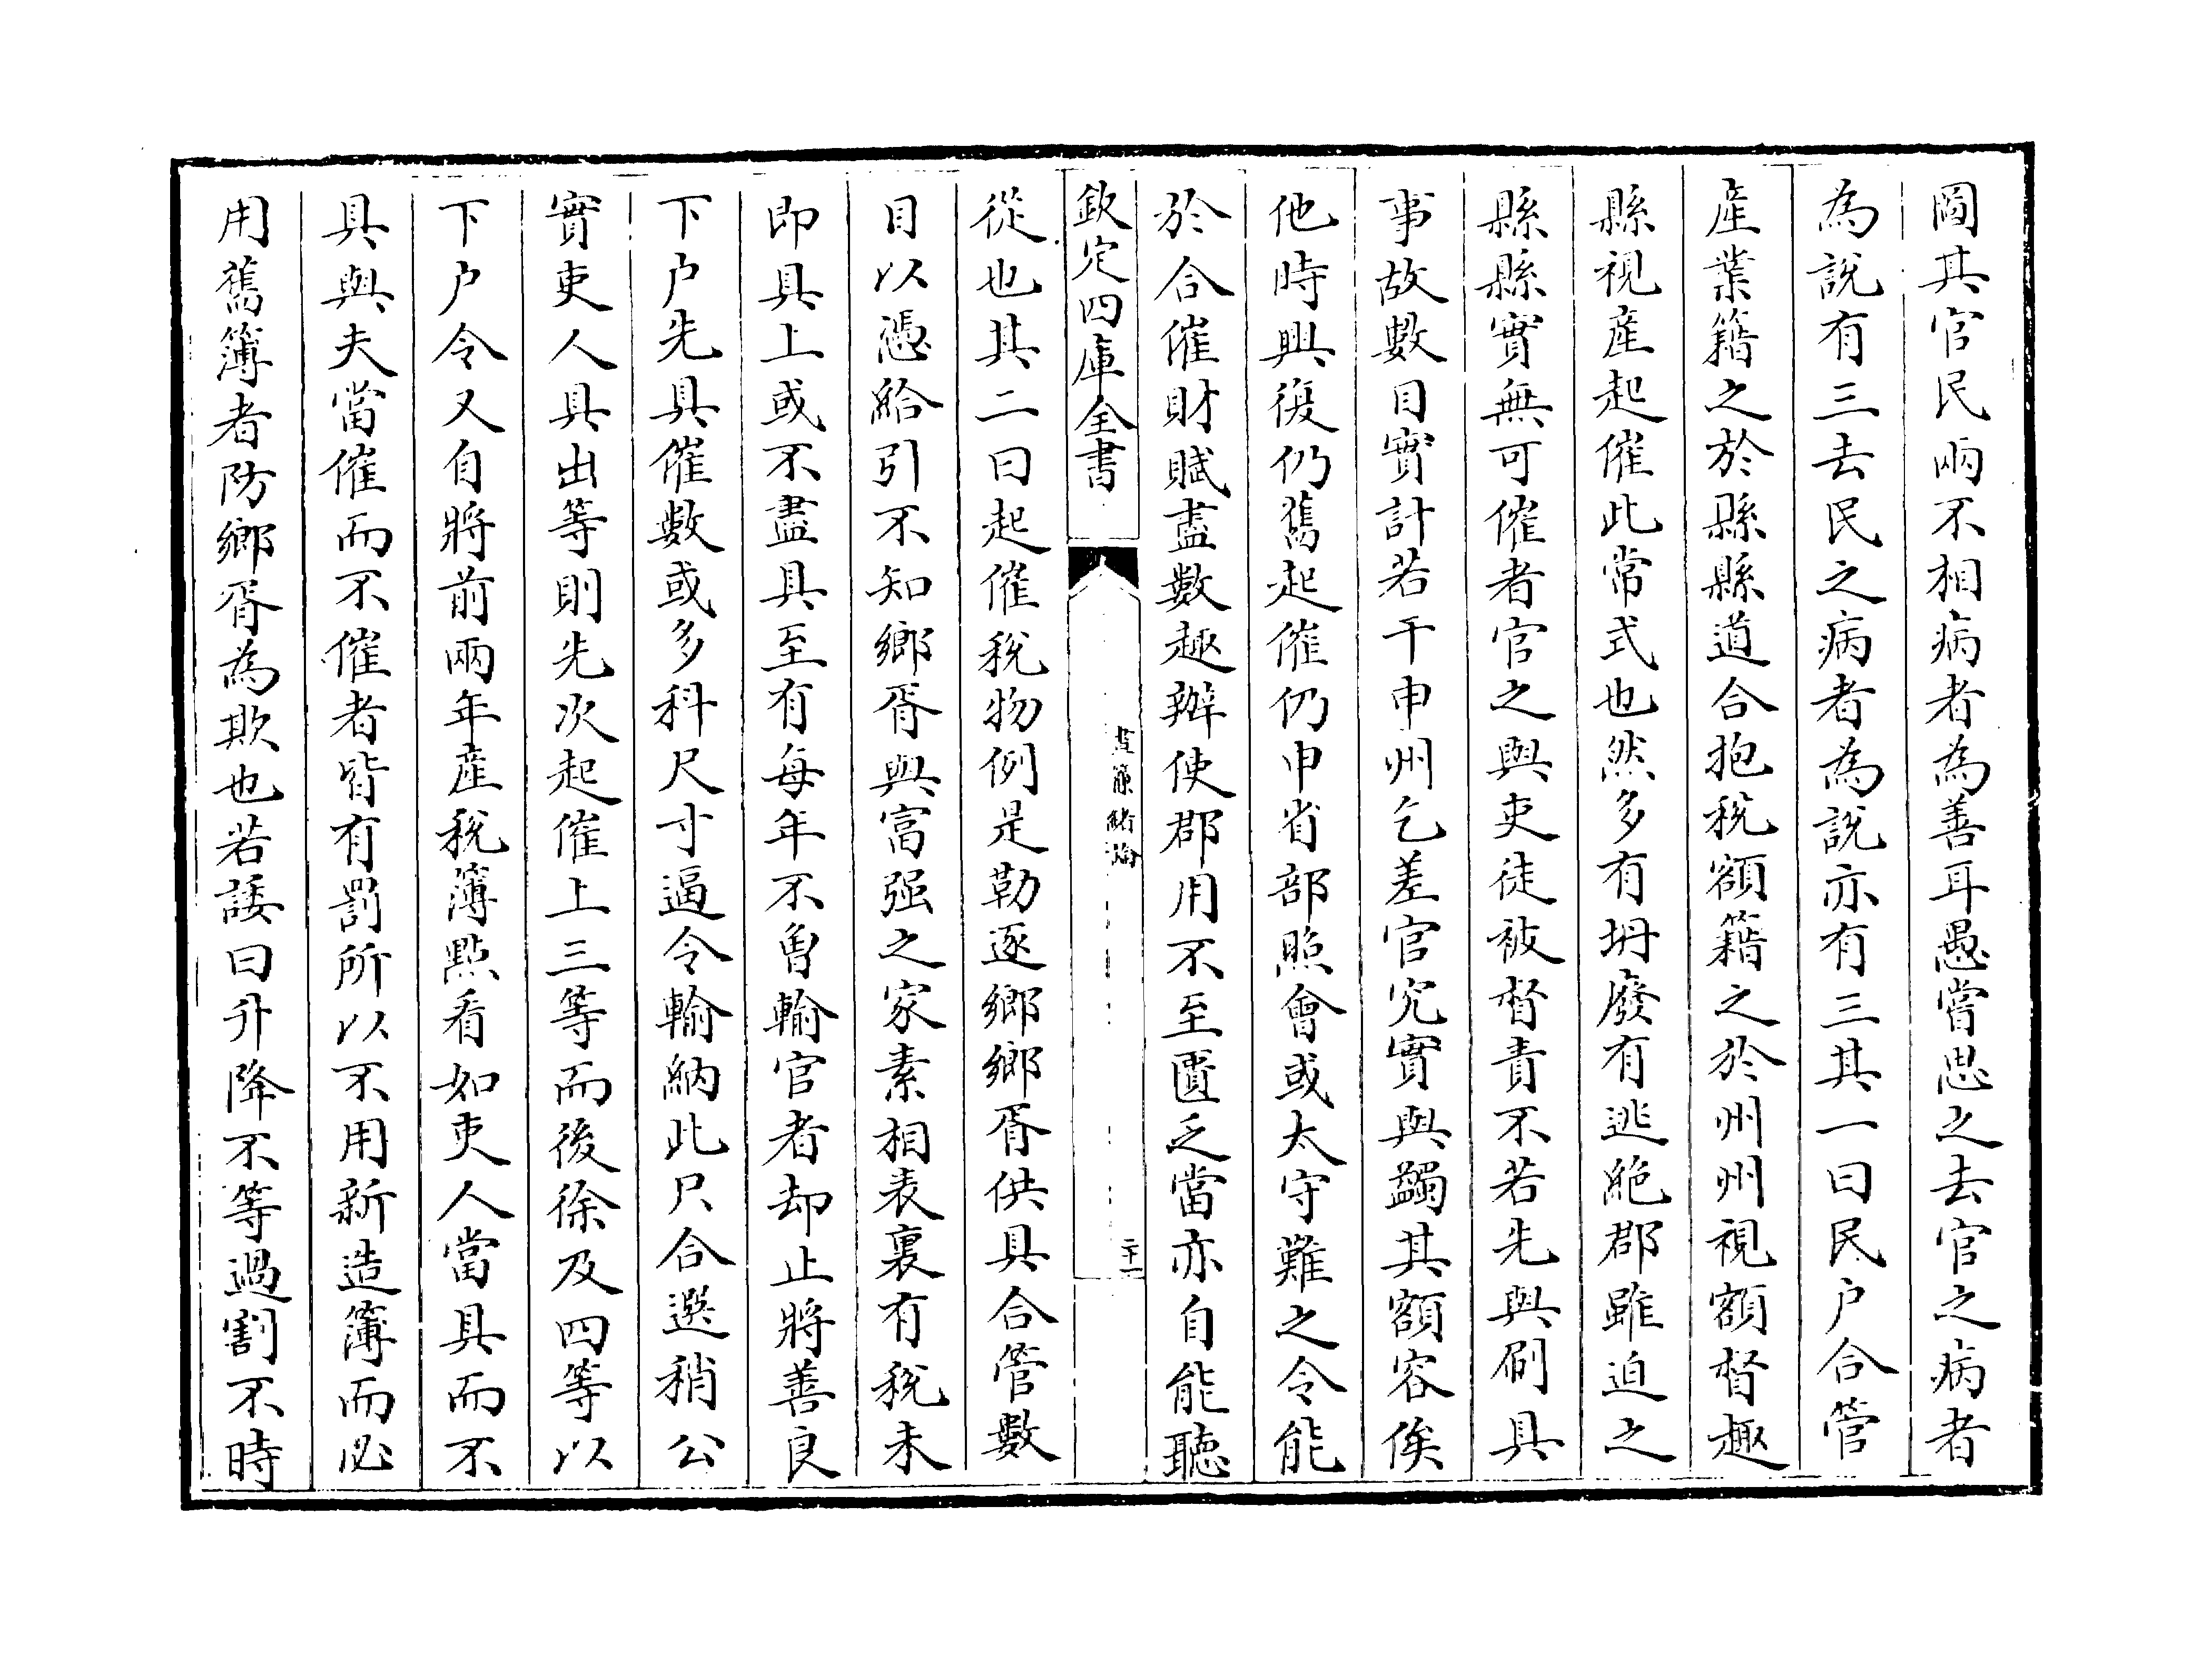 圖其官民兩不相病者為善耳愚嘗思之去官之病者
為說有三去民之病者為說亦有三其一曰民户合管
産業籍之於縣縣道合抱税額籍之於州州視額督趣
縣視産起催此常式也然多有坍廢有逃絶郡雖迫之
縣縣實無可催者官之與吏徒被督責不若先與刷具
事故數目實計若干申州乞差官究實與蠲其額容俟
他時興復仍舊起催仍申省部照會或太守難之令能
於合催財賦盡數趣辦使郡用不至匱乏當亦自能聽
欽定四庫全書
晝簾緒論
二十一
從也其二曰起催税物例是勒逐鄉鄉胥供具合管數
目以憑給引不知鄉胥與富强之家素相表裏有税未
即具上或不盡具至有每年不曾輸官者却止將善良
下户先具催數或多科尺寸逼令輸納此只合選稍公
實吏人具出等則先次起催上三等而後徐及四等以
下户令又自將前兩年産税簿㸃看如吏人當具而不
具與夫當催而不催者皆有罰所以不用新造簿而必
用舊簿者防鄉胥為欺也若諉曰升降不等過割不時